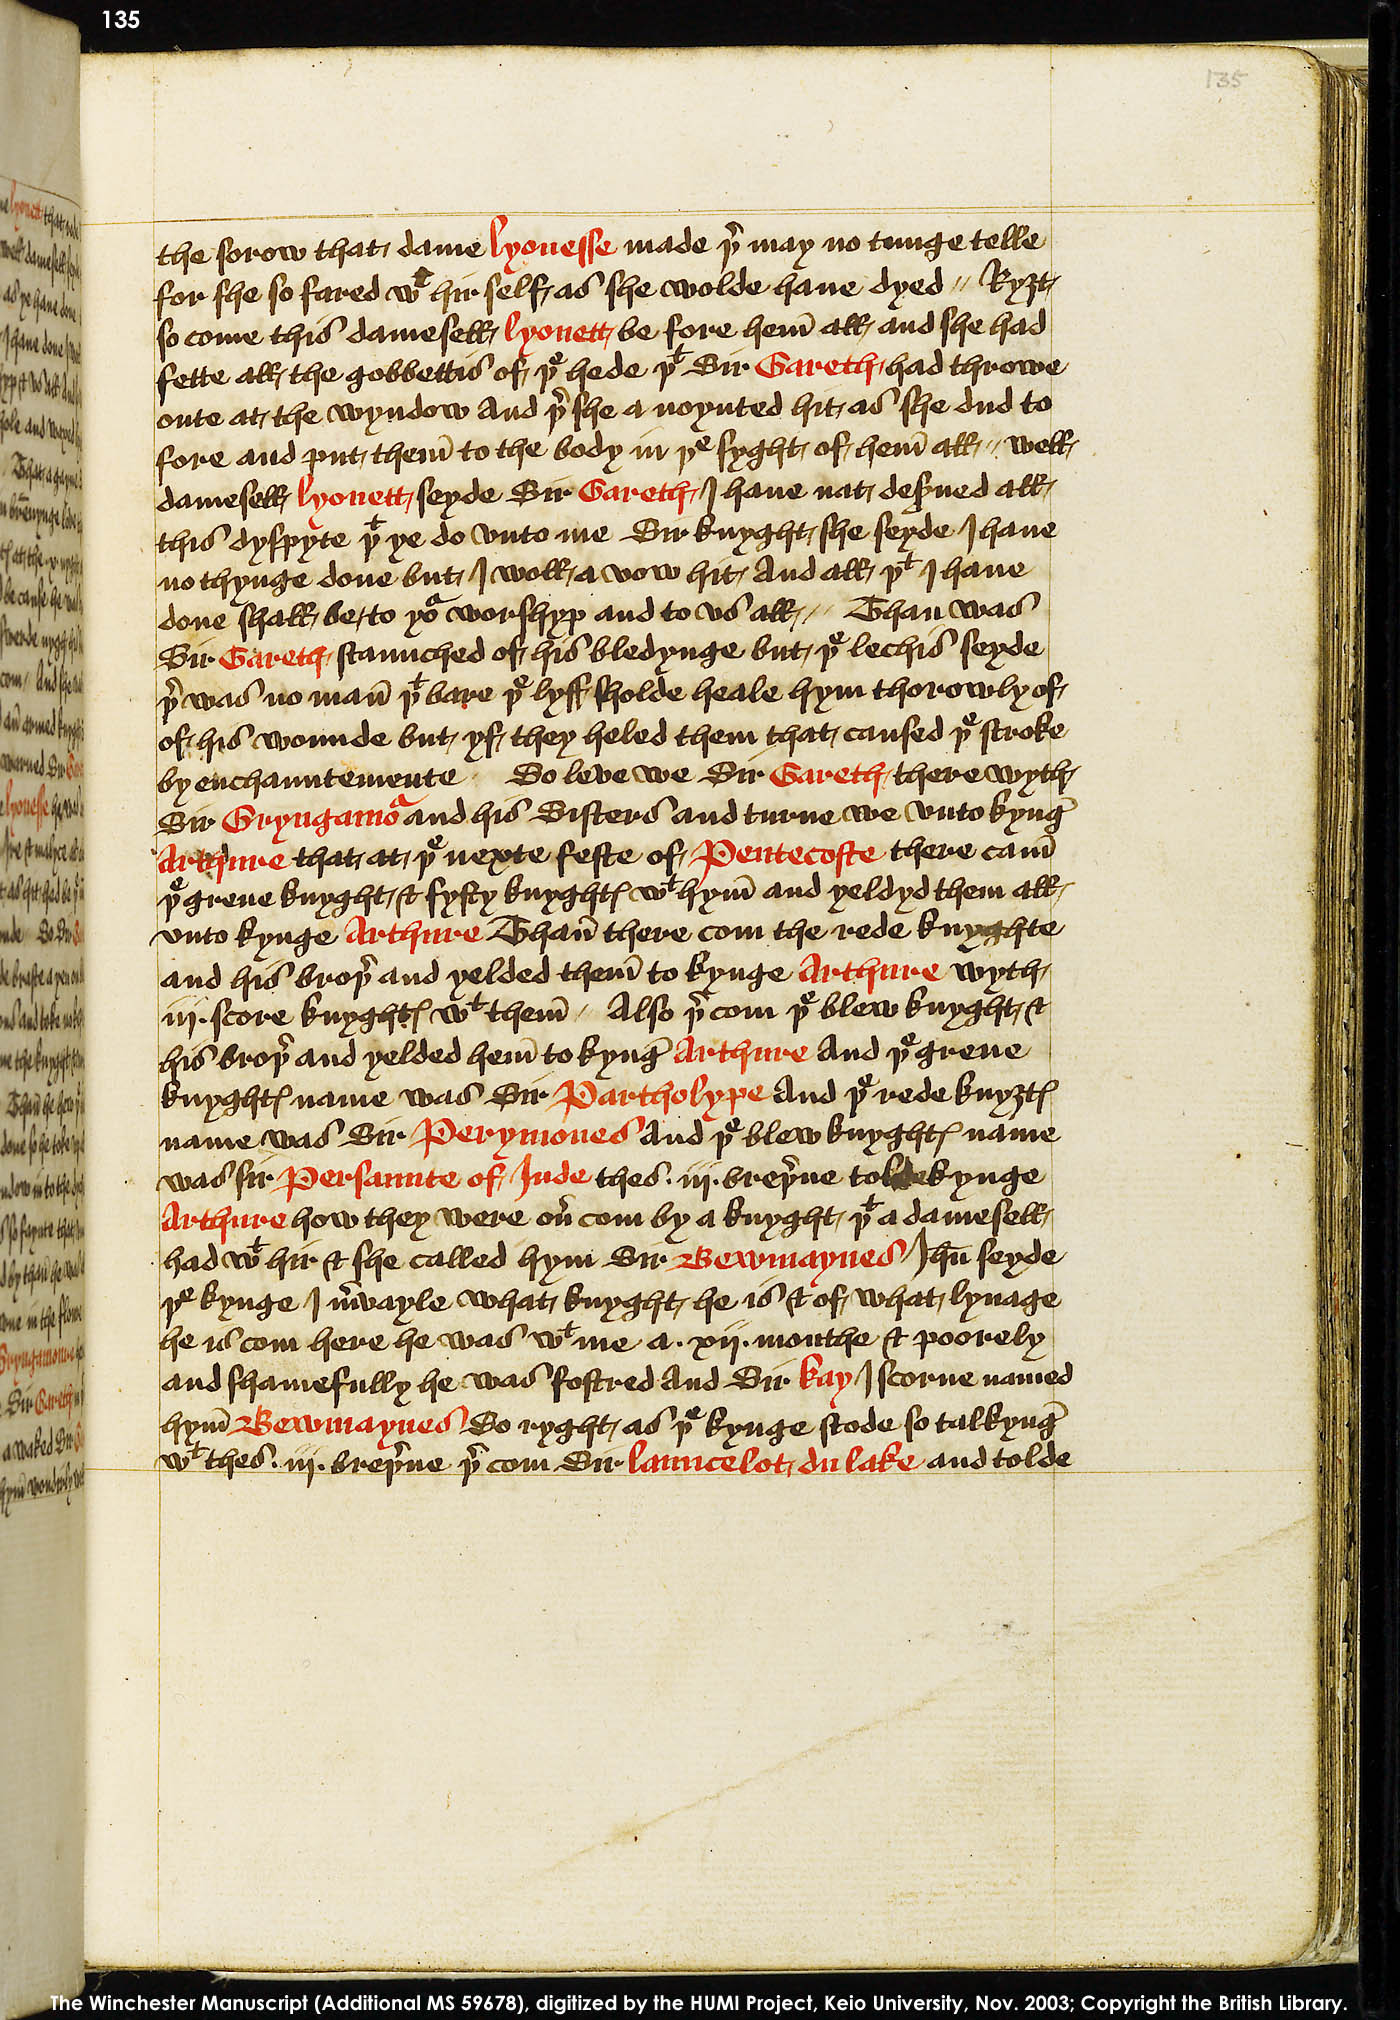 135
135
the sorow that dame lyonesse made þr may no tunge telle
for she so fared wt hir self as she wolde haue dyed // Ryȝt
so come this damesell lyonett be fore hem̄ all and she had
fette all the gobbettis of þe hede þt Sir Gareth had throwe
oute at the wyndow And þr she a noynted hit as she dud to
fore and put them̄ to the body in þe syght of hem̄ all // well
damesell lyonett seyde Sir Gareth I haue nat deserued all
this dyspyte þt ye do vnto me Sir knyght she seyde I haue
no thynge done but I woll a vow hit And all þt I haue
done shall be to yor worshyp and to vs all // Than was
Sir Gareth staunched of his bledynge but þe lechis seyde
þr was no man̄ þt bare þe lyff sholde heale hym thorowly of
of his wounde but yf they heled them that caused þe stroke
by enchauntemente So leve we Sir Gareth there wyth
Sir Gryngamor and his Sisters and turne we vnto kynḡ
Arthure that at þe nexte feste of Pentecoste there cam̄
þe grene knyght & fyfty knyghtꝭ wt hym̄ and yeldyd them all
vnto kynge Arthure Than̄ there com the rede knyghte
and his broþr and yelded them̄ to kynge Arthure wyth
iij. score knyghtꝭ wt them̄ // Also þr com þe blew knyght &
his broþr and yelded hem̄ to kynḡ Arthure And þe grene
knyghtꝭ name was Sir Partholype And þe rede knyȝtꝭ
name was Sir Perymones And þe blew knyghtꝭ name
was sir Persaunte of Inde thes .iij. breþrne tolde kynge
Arthure how they were ou̓ com by a knyght þt a damesell
had wt hir & she called hym Sir Bewmaynes Ihū seyde
þe kynge I m̓vayle what knyght he is & of what lynage
he is com here he was wt me a .xij. monthe & poorely
and shamefully he was fostred And Sir kay I scorne named
hym̄ Bewmaynes So ryght as þe kynge stode so talkynḡ
wt thes .iij. breþrne þr com Sir launcelot du lake and tolde
The Winchester Manuscript (Additional MS 59678), digitized by the HUMI Project, Keio University, Nov. 2003; Copyright the British Library.